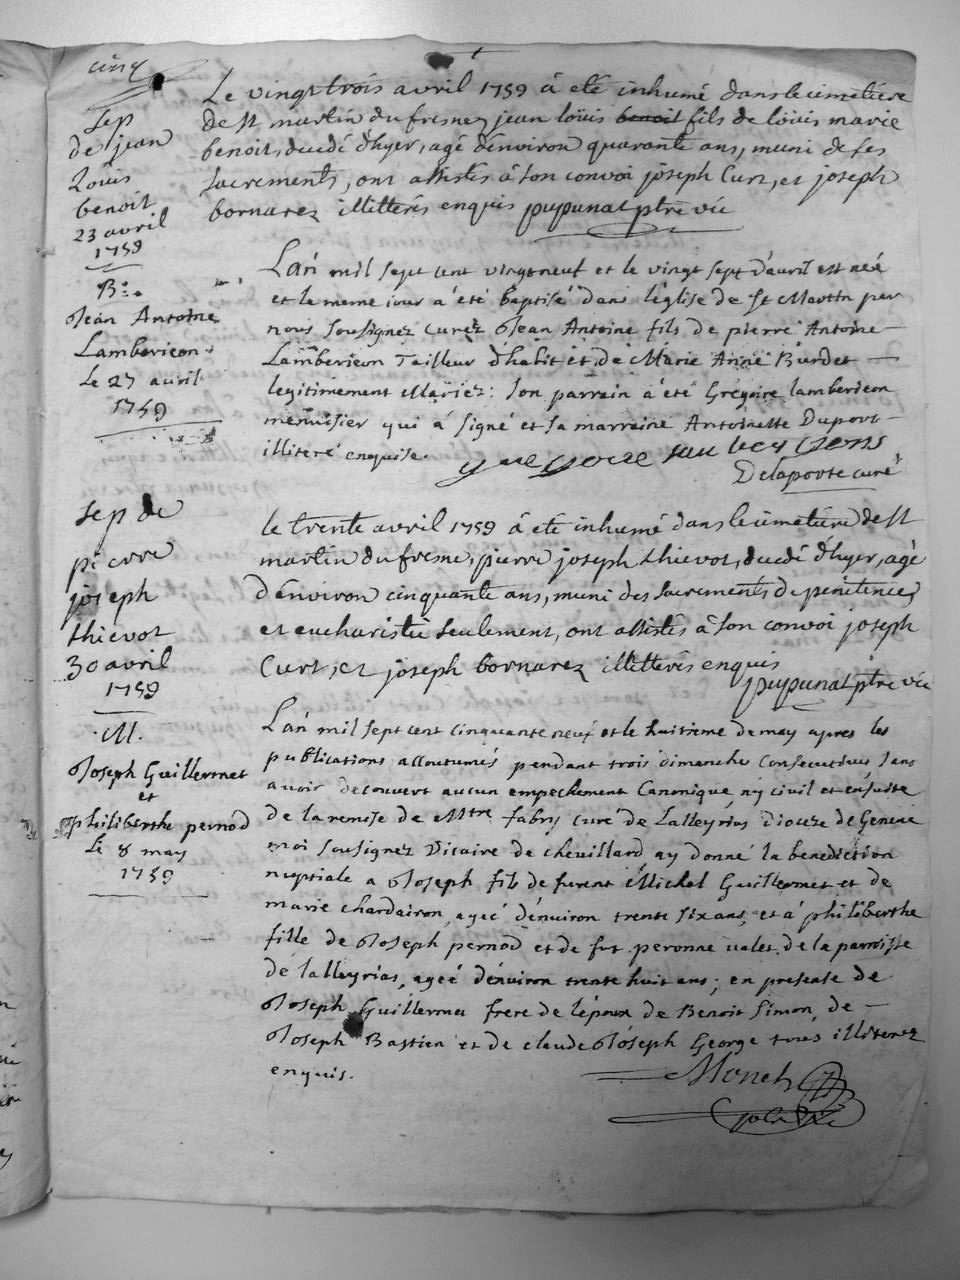 cinq
Sep
de jean
Louis
benoit
23 avril
1759
Le vingt trois avril 1759 à eté inhumé dans le cimetière
de St martin du fresne, jean loüis benoit fils de loüis marie
benoit, decedé d'hyer, agé d'environ quarante ans, muni de ses
sacrements, ont assistés à son convoi joseph Curt, et joseph
bornarez illitterés enquis pupunat ptre vic
Be
Jean Antoine
Lambericon
Le 27 avril
1759
L'an mil sept cent vingt neuf et le vingt sept d'avril est néé
et le meme jour a été baptisé dans l'église de St Martin par
nous sousignez Curez Jean Antoine fils de pierre Antoine
Lambericon Tailleur d'habit et de Marie Anne Burdet
legitimement Mariez: son parrain à été Grégoire lambericon
menuisier qui à signé et sa marraine Antoinette Duport
illiteré enquise.
Delaporte curé
Sep de
pierre
joseph
thievot
30 avril
1759
le trente avril 1759 à eté inhumé dans le cimetière de St
martin du fresne, pierre joseph thievot, decedé d'hyer, agé
d'environ cinquante ans, muni des sacrements de penitence
et eucharistie seulement, ont assistés à son convoi joseph
Curt, et joseph bornarez illitterés enquis
pupunat ptre vic
M.
Joseph Guillermet
et
philiberthe pernod
Le 8 may
1759
L'an mil sept cent cinquante neuf et le huitieme de may apres les
publications accoutumés pendant trois dimanches consecutives sans
avoir decouvert aucun empechement Canonique ny civil et ensuite
de la remise de Mtre fabry curé de Lalleyrias Diocese de Geneve
moi sousignez Vicaire de chevillard ay donné la benediction
nuptiale a Joseph fils de furent Michel Guillermet et de
marie chardairon ageé d'environ trente six ans, et à philiberthe
fille de Joseph pernod et de fut peronne valet de la parroisse
de lalleyrias, ageé d'environ trente huit ans; en presense de
Joseph Guillermet frere de l'époux de Benoit Simon, de
Joseph Bastien et de claude Joseph George tous illiterez
enquis.